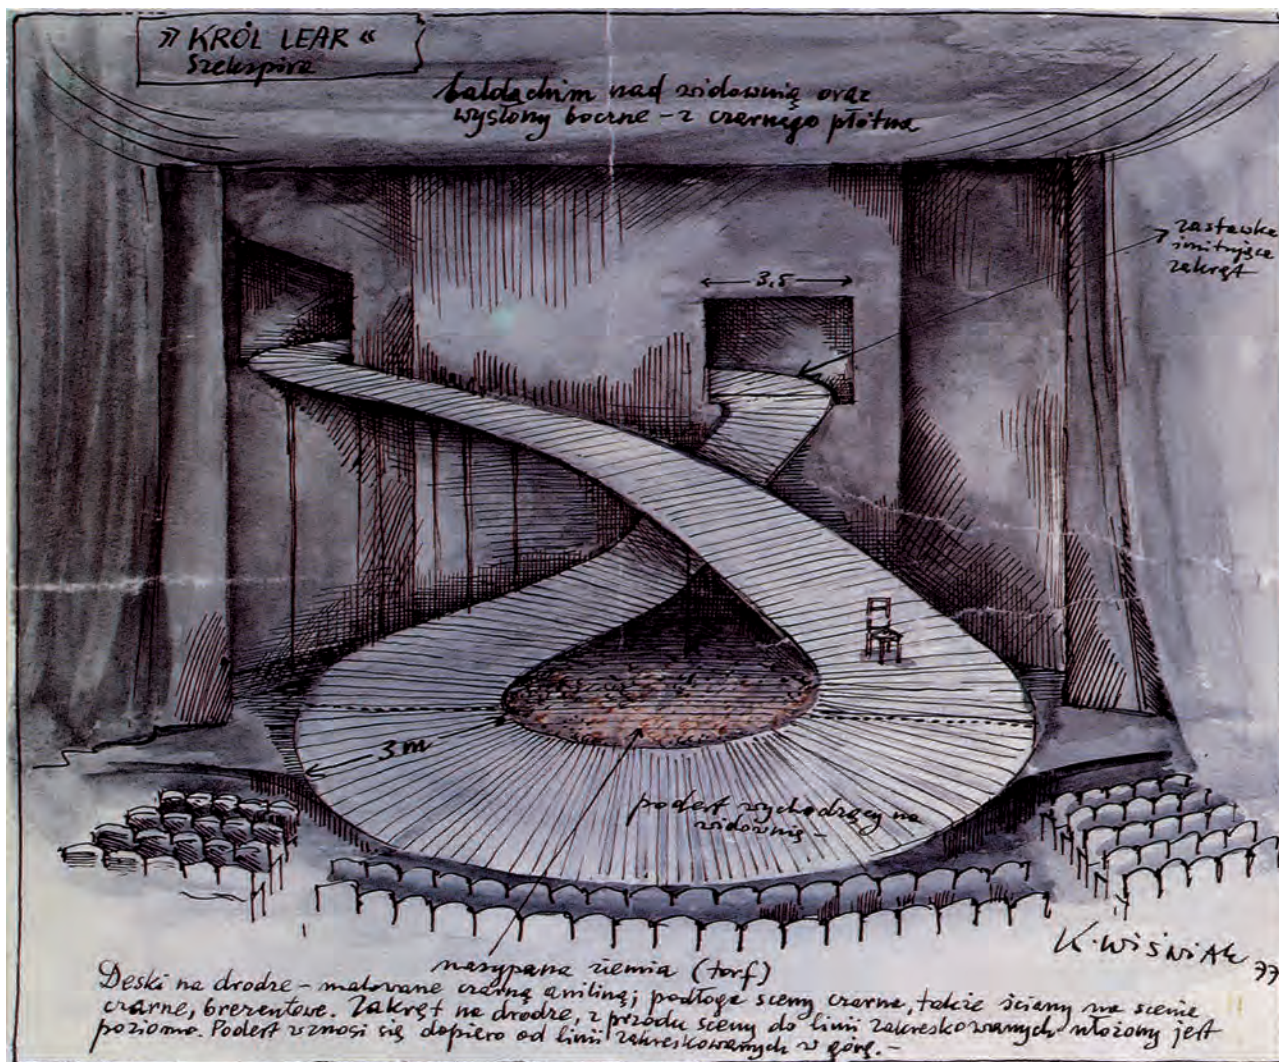 » KRÓL LEAR «
Szekspira
baldachim nad widownią oraz
wysłony boczne – z czarnego płótna
zastawka
imitująca
zakręt
3,5
3 m
podest wychodzący na
widownię –
K. WIŚNIAK 77
nasypana ziemia (torf)
Deski na drodze – malowane czarną aniliną; podłoga sceny czarna, także ściany na scenie
czarne, brezentowe. Zakręt na drodze, z przodu sceny do linii zakreskowanych ułożony jest
poziomo. Podest wznosi się dopiero od linii zakreskowanych w górę. –